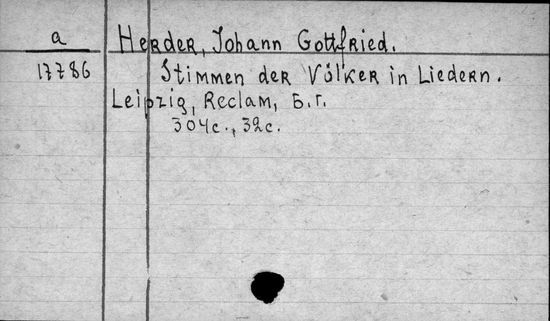 a
Herder, Johann Gottfried.
17786
Stimmen der Völker in Liedern.
Leipzig, Reclam, Б.г.
304с., 32с.